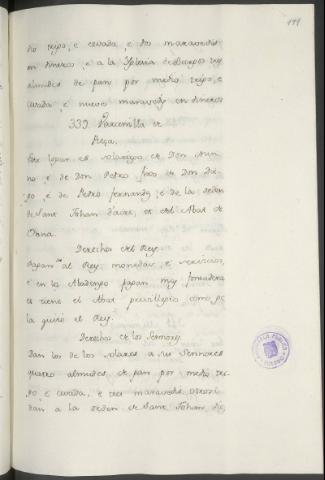 191
dio trigo, e cevada, e dos maravedis
en dineros, e a la Yglesia de Burgos tres
almudes de pan por medio trigo, e
cevada, e nueve maravedis en dineros
339. Parcenilla de
Pieça.
Este logar es solariego de Don Nun
no, e de Don Pedro fijo de Don Die
go, e de Pedro Fernandez, e de la orden
de Sant Johan d'acre, et del Abat de
Onna.
Derechos del Rey.
Pagan al Rey monedas, e servicios,
e en lo Abadengo pagan fonsadera
et tiene el Abat previllegio como ge
la quitó el Rey.
Derechos de los Sennores
Dan los de los solares a sus Sennores
quatro almudes de pan por medio tri
go, e cevada, e tres maravedis
dan a la orden de Sant Johan de